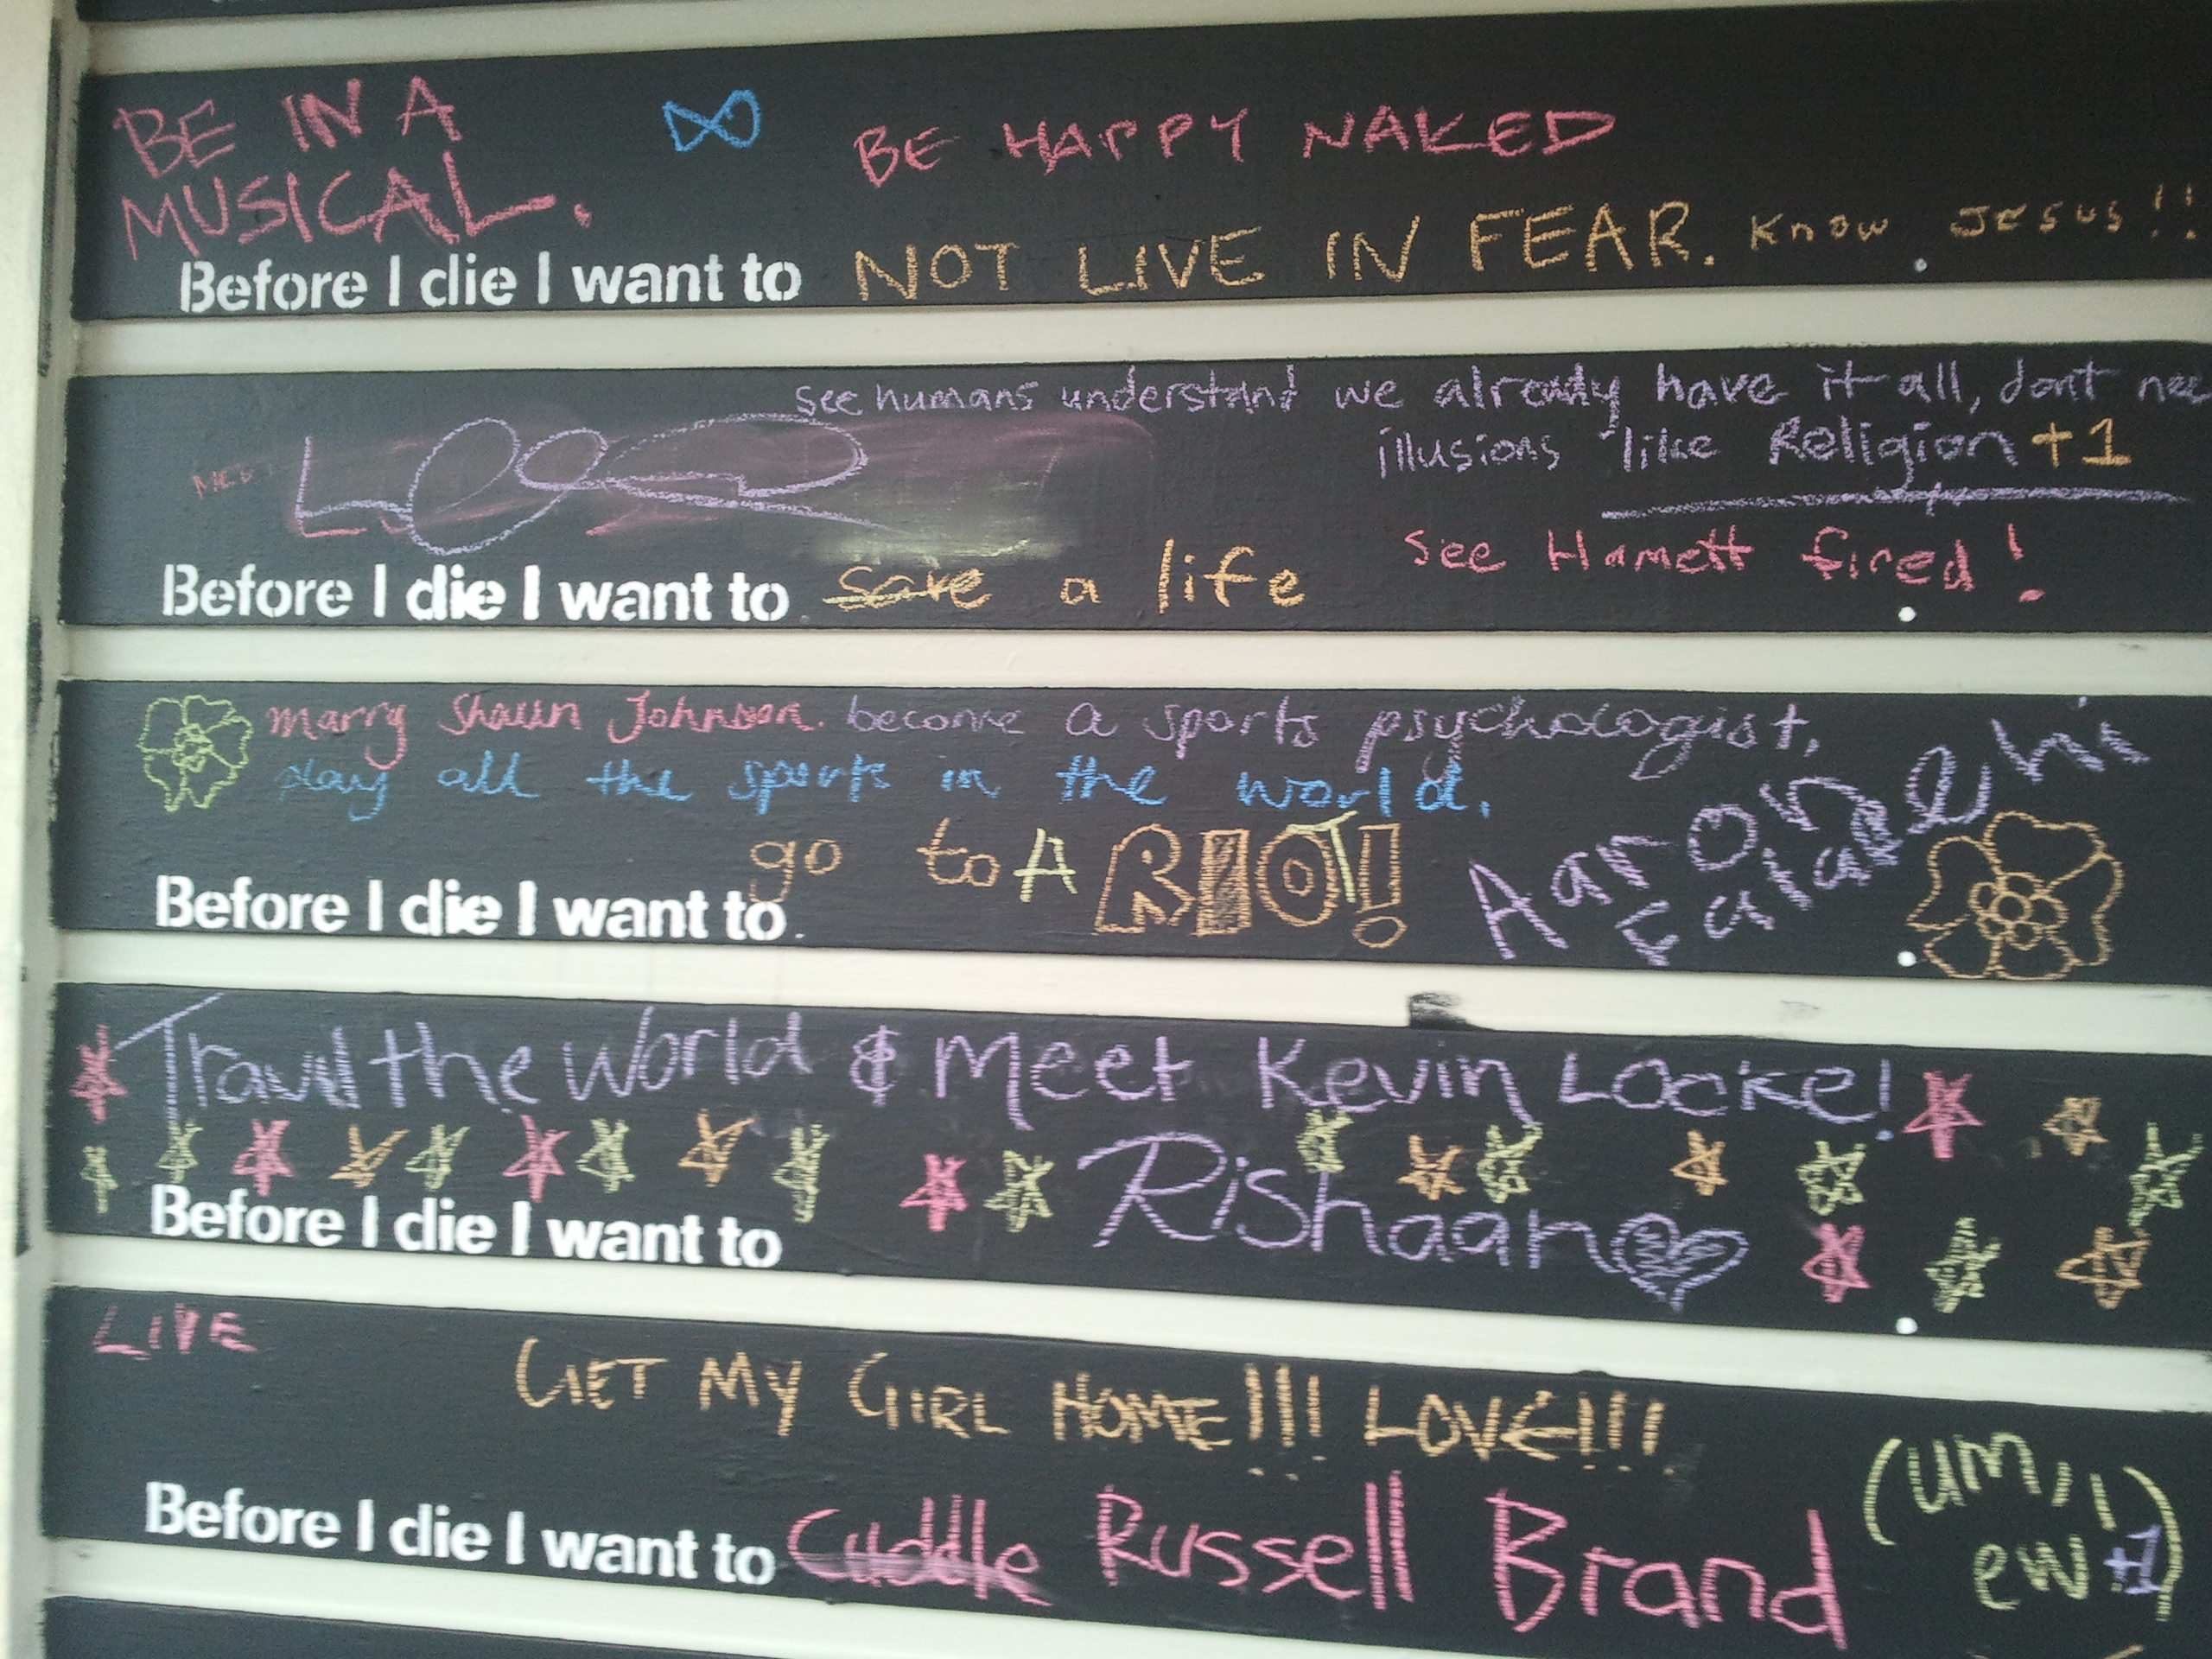 BE IN A
MUSICAL.
BE HAPPY NAKED
Before I die I want to NOT LIVE IN FEAR. Know Jesus!!
see humans understand we already have it all, dont nee
illusions like Religion +1
see Hamett fired!
Before I die I want to save a life
marry Shaun Johnson. become a sports psychologist,
play all the sports in the world.
go to A RIOT!
Aaron
Before I die I want to
Travel the World & Meet Kevin Locke!
Rishaan
Before I die I want to
LIVE
GET MY GIRL HOME!!! LOVE!!!
Before I die I want to Cuddle Russell Brand
(um,,
ew +1)